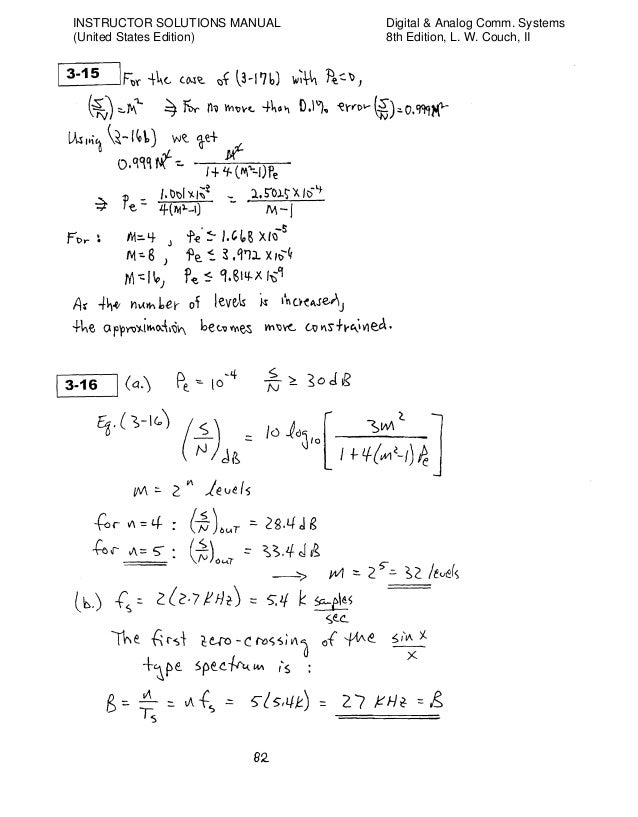 INSTRUCTOR SOLUTIONS MANUAL Digital & Analog Comm. Systems
(United States Edition) 8th Edition, L. W. Couch, II
3-15 For the case of (3-17b) with Pe=0,
(S/N) = M² ⇒ For no more than 0.1% error (S/N) = 0.999M²
Using (3-16b) we get
0.999 M² = M² / (1+4(M²-1)Pe)
⇒ Pe = 1.001×10⁻³ / 4(M²-1) = 2.5025×10⁻⁴ / M-1
For: M=4, Pe ≤ 1.668×10⁻⁵
M=8, Pe ≤ 3.972×10⁻⁶
M=16, Pe ≤ 9.814×10⁻⁹
As the number of levels is increased,
the approximation becomes more constrained.
3-16 (a.) Pe = 10⁻⁴ S/N ≥ 30 dB
Eq. (3-16) (S/N)dB = 10 log₁₀ [3m² / (1+4(m²-1)Pe)]
m = 2ⁿ levels
for n=4 : (S/N)OUT = 28.4 dB
for n=5 : (S/N)OUT = 33.4 dB
→ m = 2⁵ = 32 levels
(b.) fs = 2(2.7 KHz) = 5.4 k saples/sec
The first zero-crossing of the sin x / x
type spectrum is :
B = n/Ts = n fs = 5(5.4k) = 27 KHz = B
82